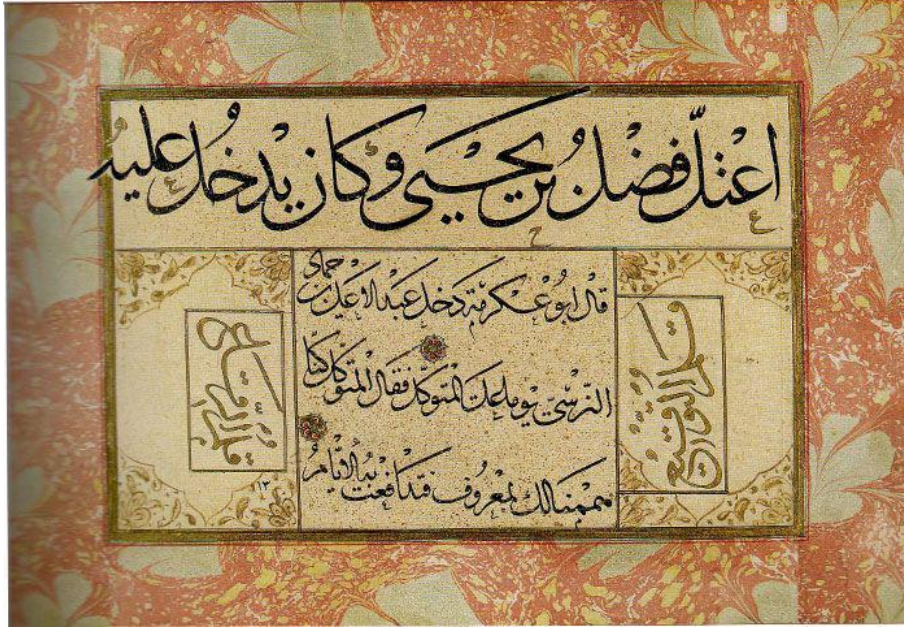 اعْتلّ فضْل بُن يحْيى وكان يدْخُلُ عليه
قال ابو عكرمة دخل عبد الاعلى بن حماد
النرسيّ يوما على المتوكّل فقال المتوكل كنّا
هممنا لك بمعروف فتدافعت به الايّام
قلم الرقاع
١٣